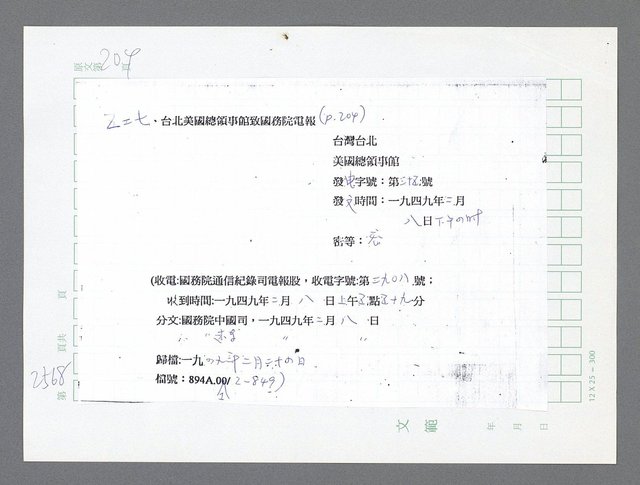 原文第204頁
乙二七、台北美國總領事館致國務院電報(p.204)
台灣台北
美國總領事館
發電字號：第二十五號
發文時間：一九四九年二月
八日下午四時
密等：密
(收電:國務院通信紀錄司電報股，收電字號:第二九〇八號；
收到時間:一九四九年二月八日上午 點 十九分
分文:國務院中國司，一九四九年二月八日
歸檔:一九四九年二月二十四日
檔號：894A.00/2-849)
2568
第 頁共 頁
文範
年 月 日
12 X 25 = 300